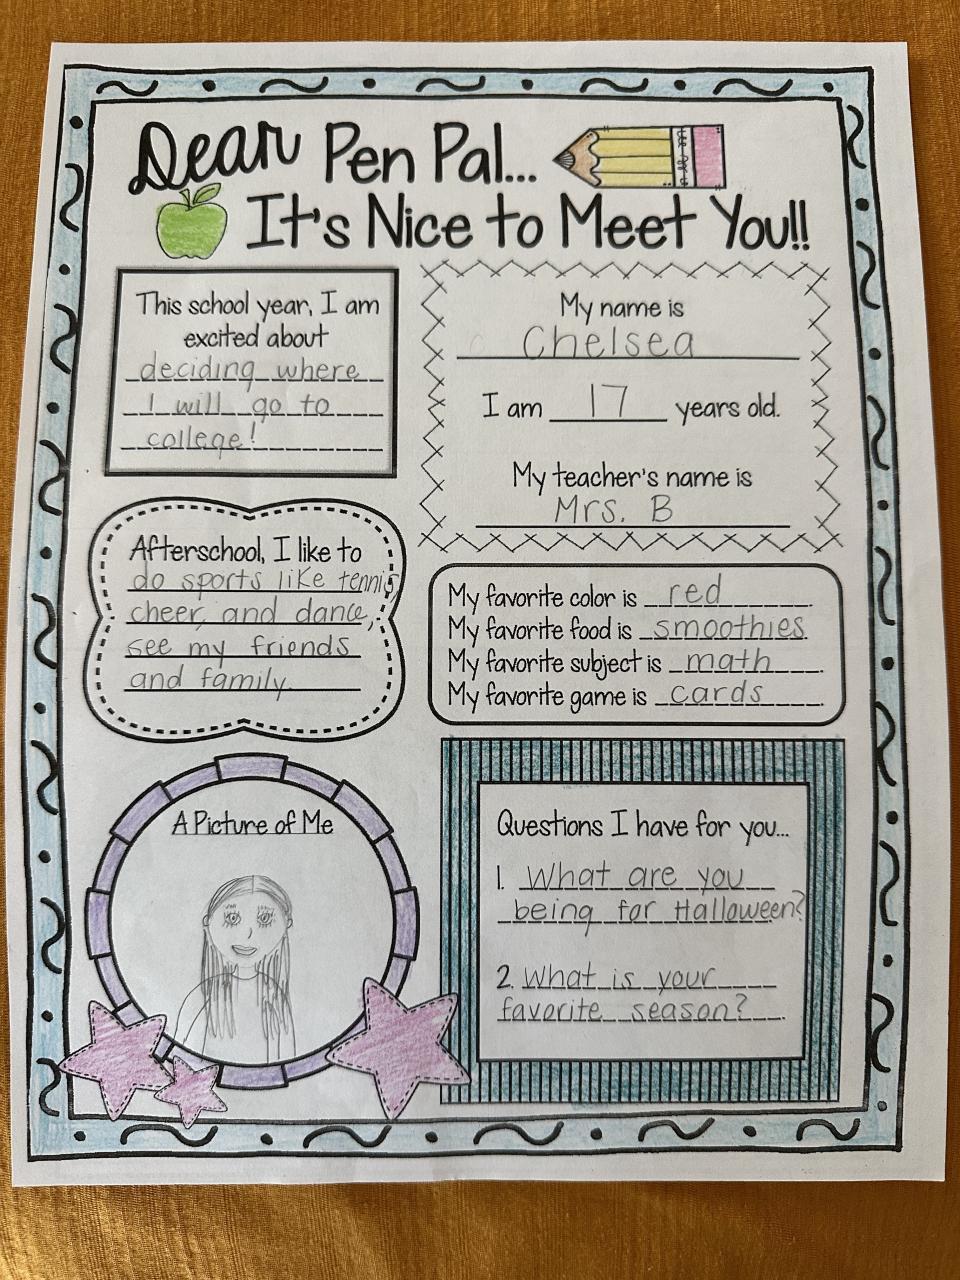 Dear Pen Pal...
It's Nice to Meet You!!
This school year, I am
excited about
deciding where
I will go to
college!
My name is
Chelsea
I am 17 years old.
My teacher's name is
Mrs. B
Afterschool, I like to
do sports like tennis,
cheer, and dance,
see my friends
and family.
My favorite color is red.
My favorite food is smoothies.
My favorite subject is math.
My favorite game is cards.
A Picture of Me
Questions I have for you...
1. What are you
being for Halloween?
2. What is your
favorite season?